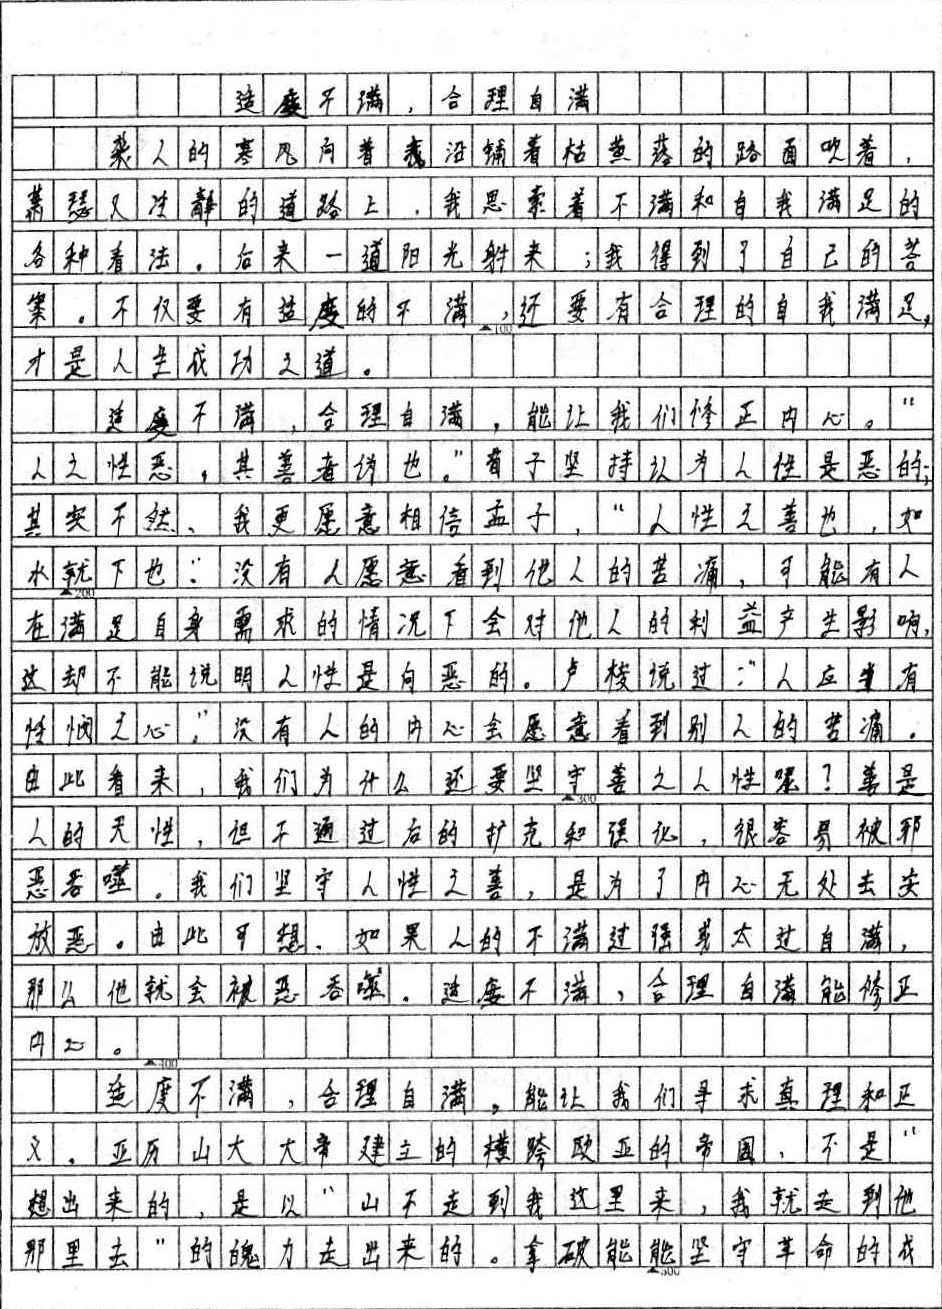 适度不满,合理自满
袭人的寒风向着沿铺着枯黄落的路面吹着,
萧瑟又冷静的道路上,我思索着不满和自我满足的
各种看法。后来一道阳光射来;我得到了自己的答
案。不仅要有适度的不满,还要有合理的自我满足,
才是人生成功之道。
适度不满,合理自满,能让我们修正内心。“
人之性恶,其善者伪也。”荀子坚持认为人性是恶的;
其实不然、我更愿意相信孟子,“人性之善也,如
水就下也”:没有人愿意看到他人的苦痛,可能有人
在满足自身需求的情况下会对他人的利益产生影响,
这却不能说明人性是向恶的。卢梭说过:“人应当有
怪悯之心,”没有人的内心会愿意看到别人的苦痛。
由此看来,我们为什么还要坚守善之人性呢?善是
人的天性,但不通过后的扩充和强化,很容易被邪
恶吞噬。我们坚守人性之善,是为了内心无处去安
放恶。由此可想、如果人的不满过强或太过自满,
那么他就会被恶吞噬。适度不满,合理自满能修正
内心。
适度不满,合理自满。能让我们寻求真理和正
义。亚历山大大帝建立的横跨欧亚的帝国、不是“
想出来的,是以“山不走到我这里来,我就走到他
那里去”的魄力走出来的。拿破能能坚守革命的成
▲100
▲200
▲300
▲400
▲500